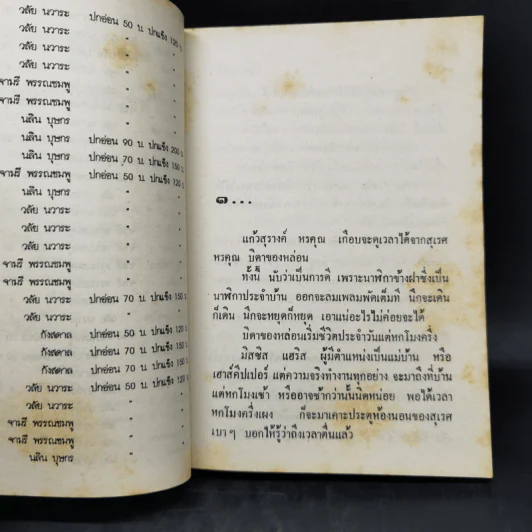 วลัย นวาระ ปกอ่อน 50 บ. ปกแข็ง 120 บ.
วลัย นวาระ " "
วลัย นวาระ " "
วลัย นวาระ " "
จามรี พรรณชมพู " "
จามรี พรรณชมพู " "
นลิน บุษกร " "
นลิน บุษกร ปกอ่อน 90 บ. ปกแข็ง 200 บ.
นลิน บุษกร ปกอ่อน 70 บ. ปกแข็ง 150 บ.
จามรี พรรณชมพู ปกอ่อน 50 บ. ปกแข็ง 120 บ.
นลิน บุษกร " "
วลัย นวาระ " "
วลัย นวาระ " "
วลัย นวาระ " "
จามรี พรรณชมพู " "
จามรี พรรณชมพู " "
วลัย นวาระ ปกอ่อน 70 บ. ปกแข็ง 150 บ.
กังสดาล ปกอ่อน 50 บ. ปกแข็ง 120 บ.
กังสดาล ปกอ่อน 70 บ. ปกแข็ง 150 บ.
กังสดาล ปกอ่อน 70 บ. ปกแข็ง 150 บ.
วลัย นวาระ ปกอ่อน 50 บ. ปกแข็ง 120 บ.
วลัย นวาระ " "
จามรี พรรณชมพู " "
จามรี พรรณชมพู " "
นลิน บุษกร " "
๑...
แก้วสุรางค์ หรคุณ เกือบจะดูเวลาได้จากสุเรศ
หรคุณ บิดาของหล่อน
ทั้งนี้ นับว่าเป็นการดี เพราะนาฬิกาข้างฝาซึ่งเป็น
นาฬิกาประจำบ้าน ออกจะลมเพลมพัดเต็มที นึกจะเดิน
ก็เดิน นึกจะหยุดก็หยุด เอาแน่อะไรไม่ค่อยจะได้
บิดาของหล่อนเริ่มชีวิตประจำวันแต่หกโมงครึ่ง
มิสซิส แฮริส ผู้มีตำแหน่งเป็นแม่บ้าน หรือ
เฮาส์คีปเปอร์ แต่ความจริงทำงานทุกอย่าง จะมาถึงที่บ้าน
แต่หกโมงเช้า หรืออาจช้ากว่านั้นนิดหน่อย พอได้เวลา
หกโมงครึ่งเผง ก็จะมาเคาะประตูห้องนอนของสุเรศ
เบาๆ บอกให้รู้ว่าถึงเวลาตื่นแล้ว